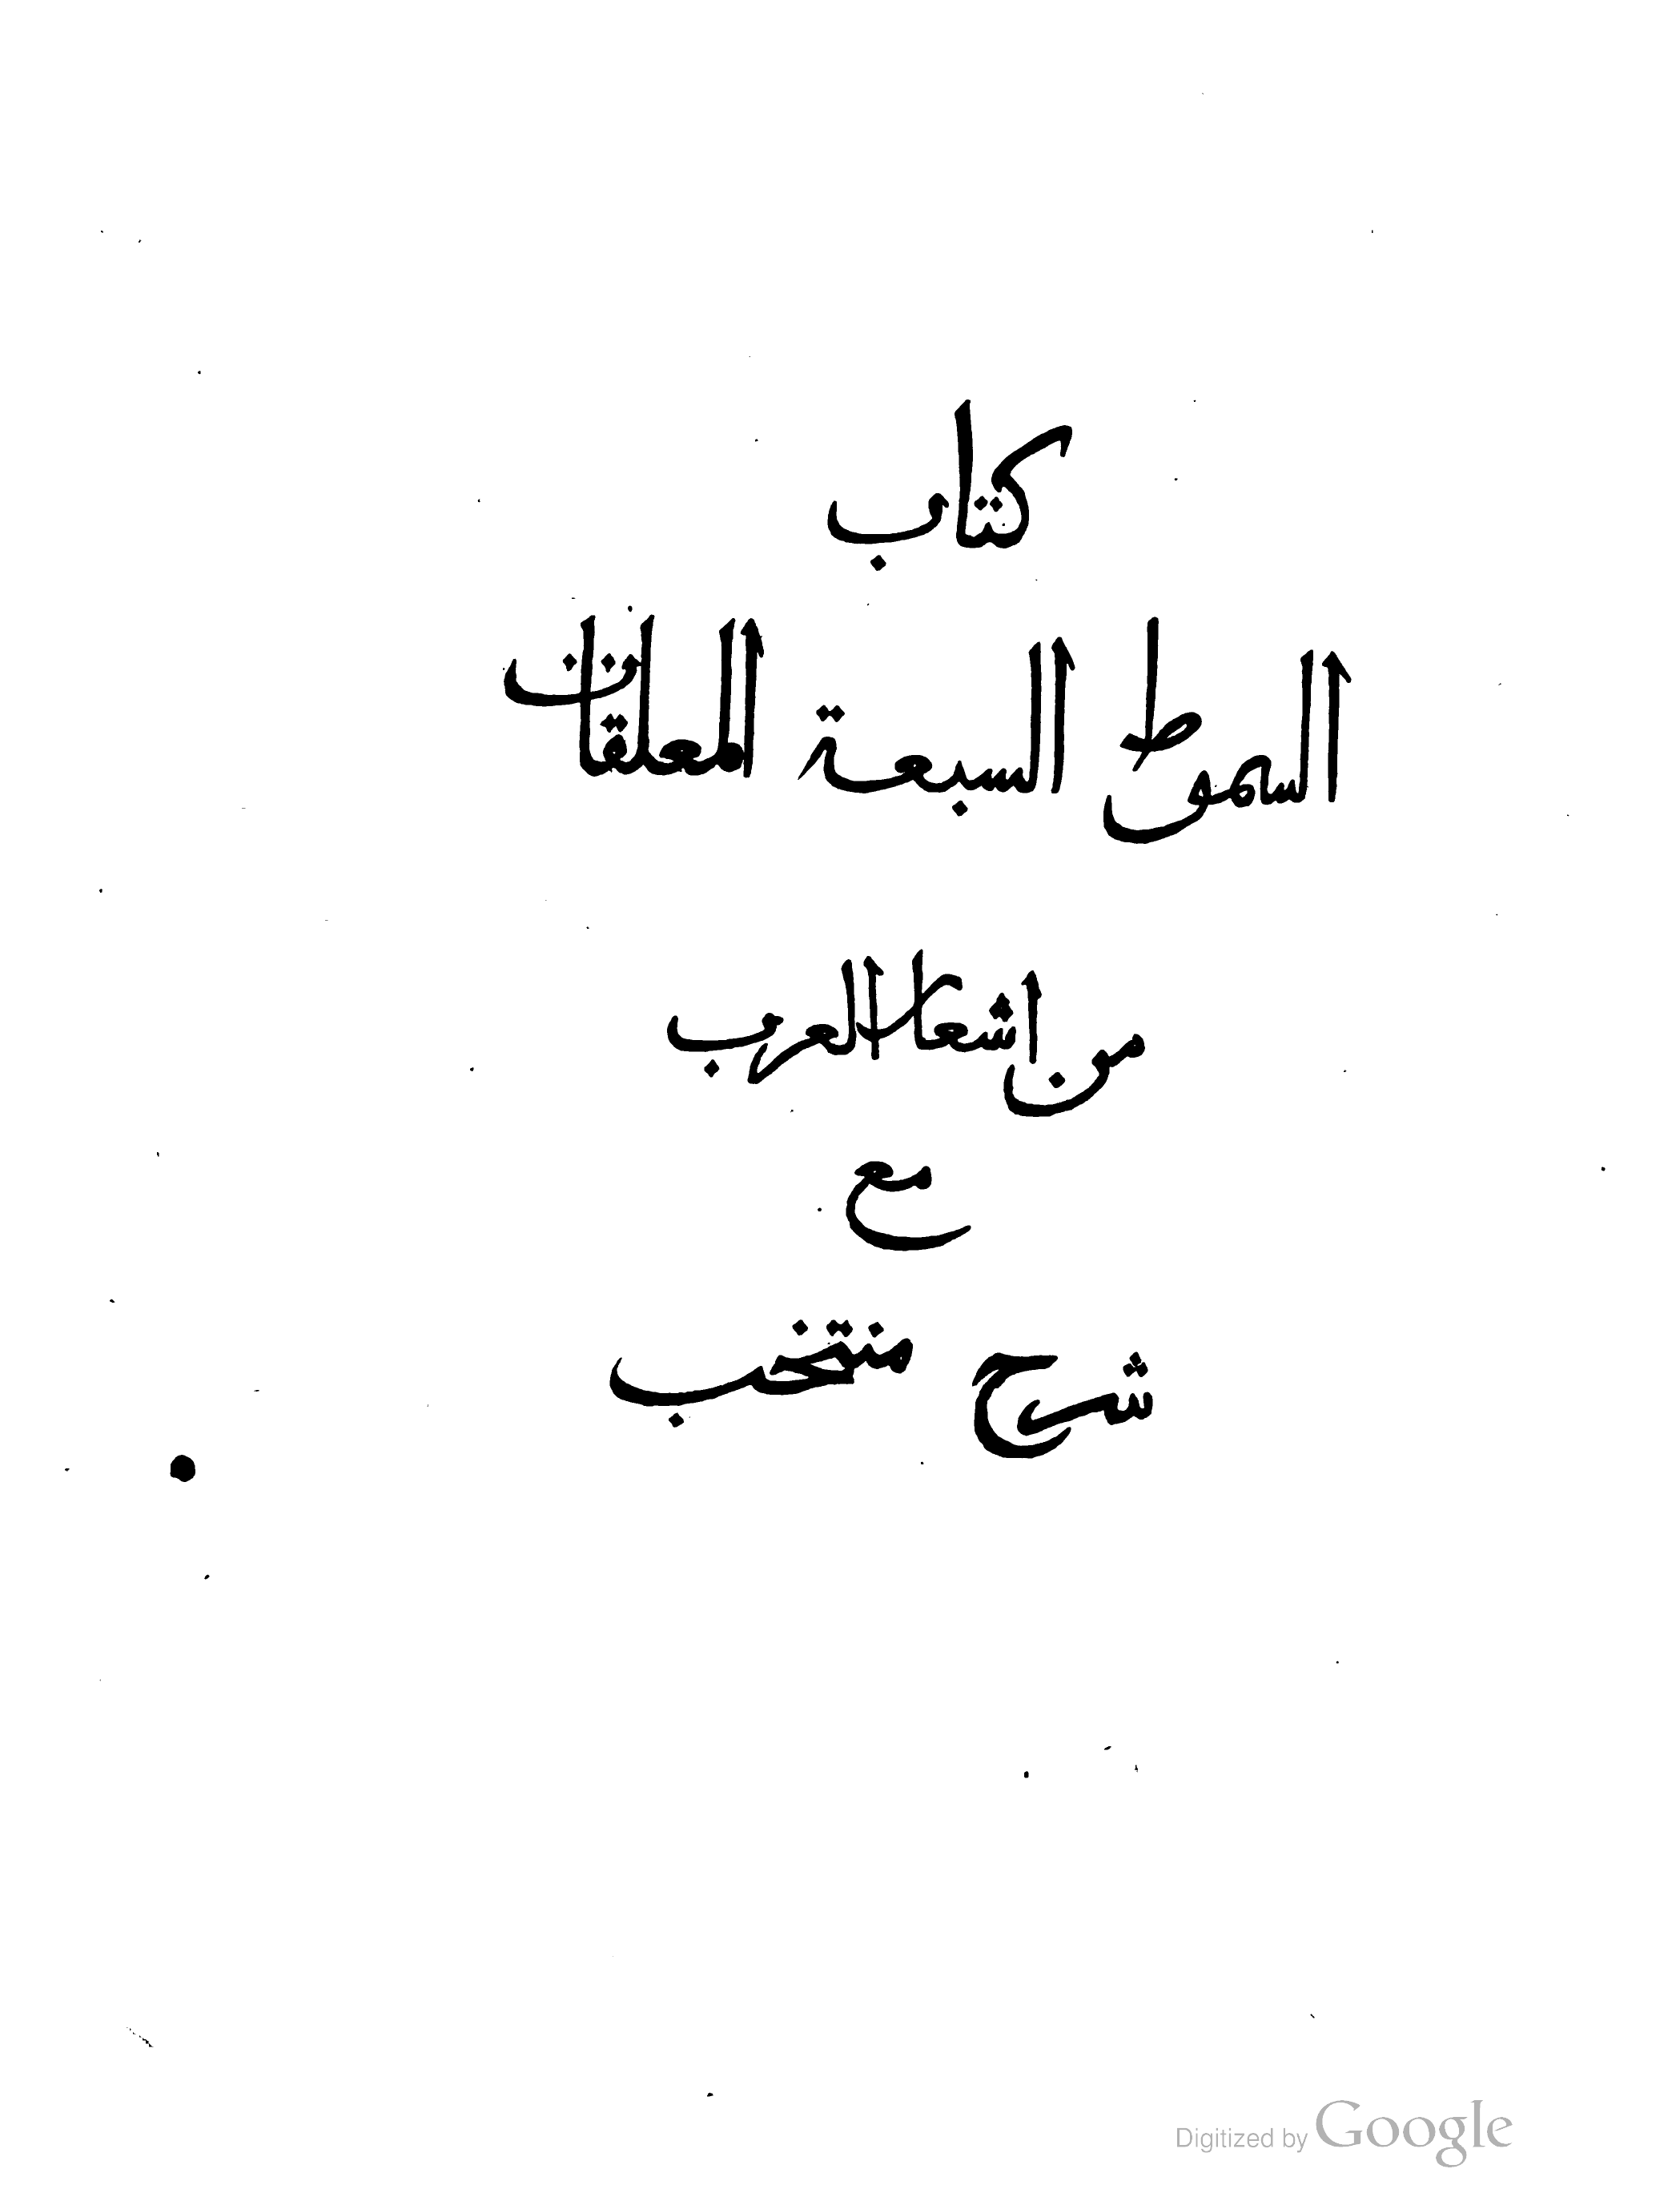 كتاب
السموط السبعة المعلقات
من اشعار العرب
مع
شرح منتخب
Digitized by Google